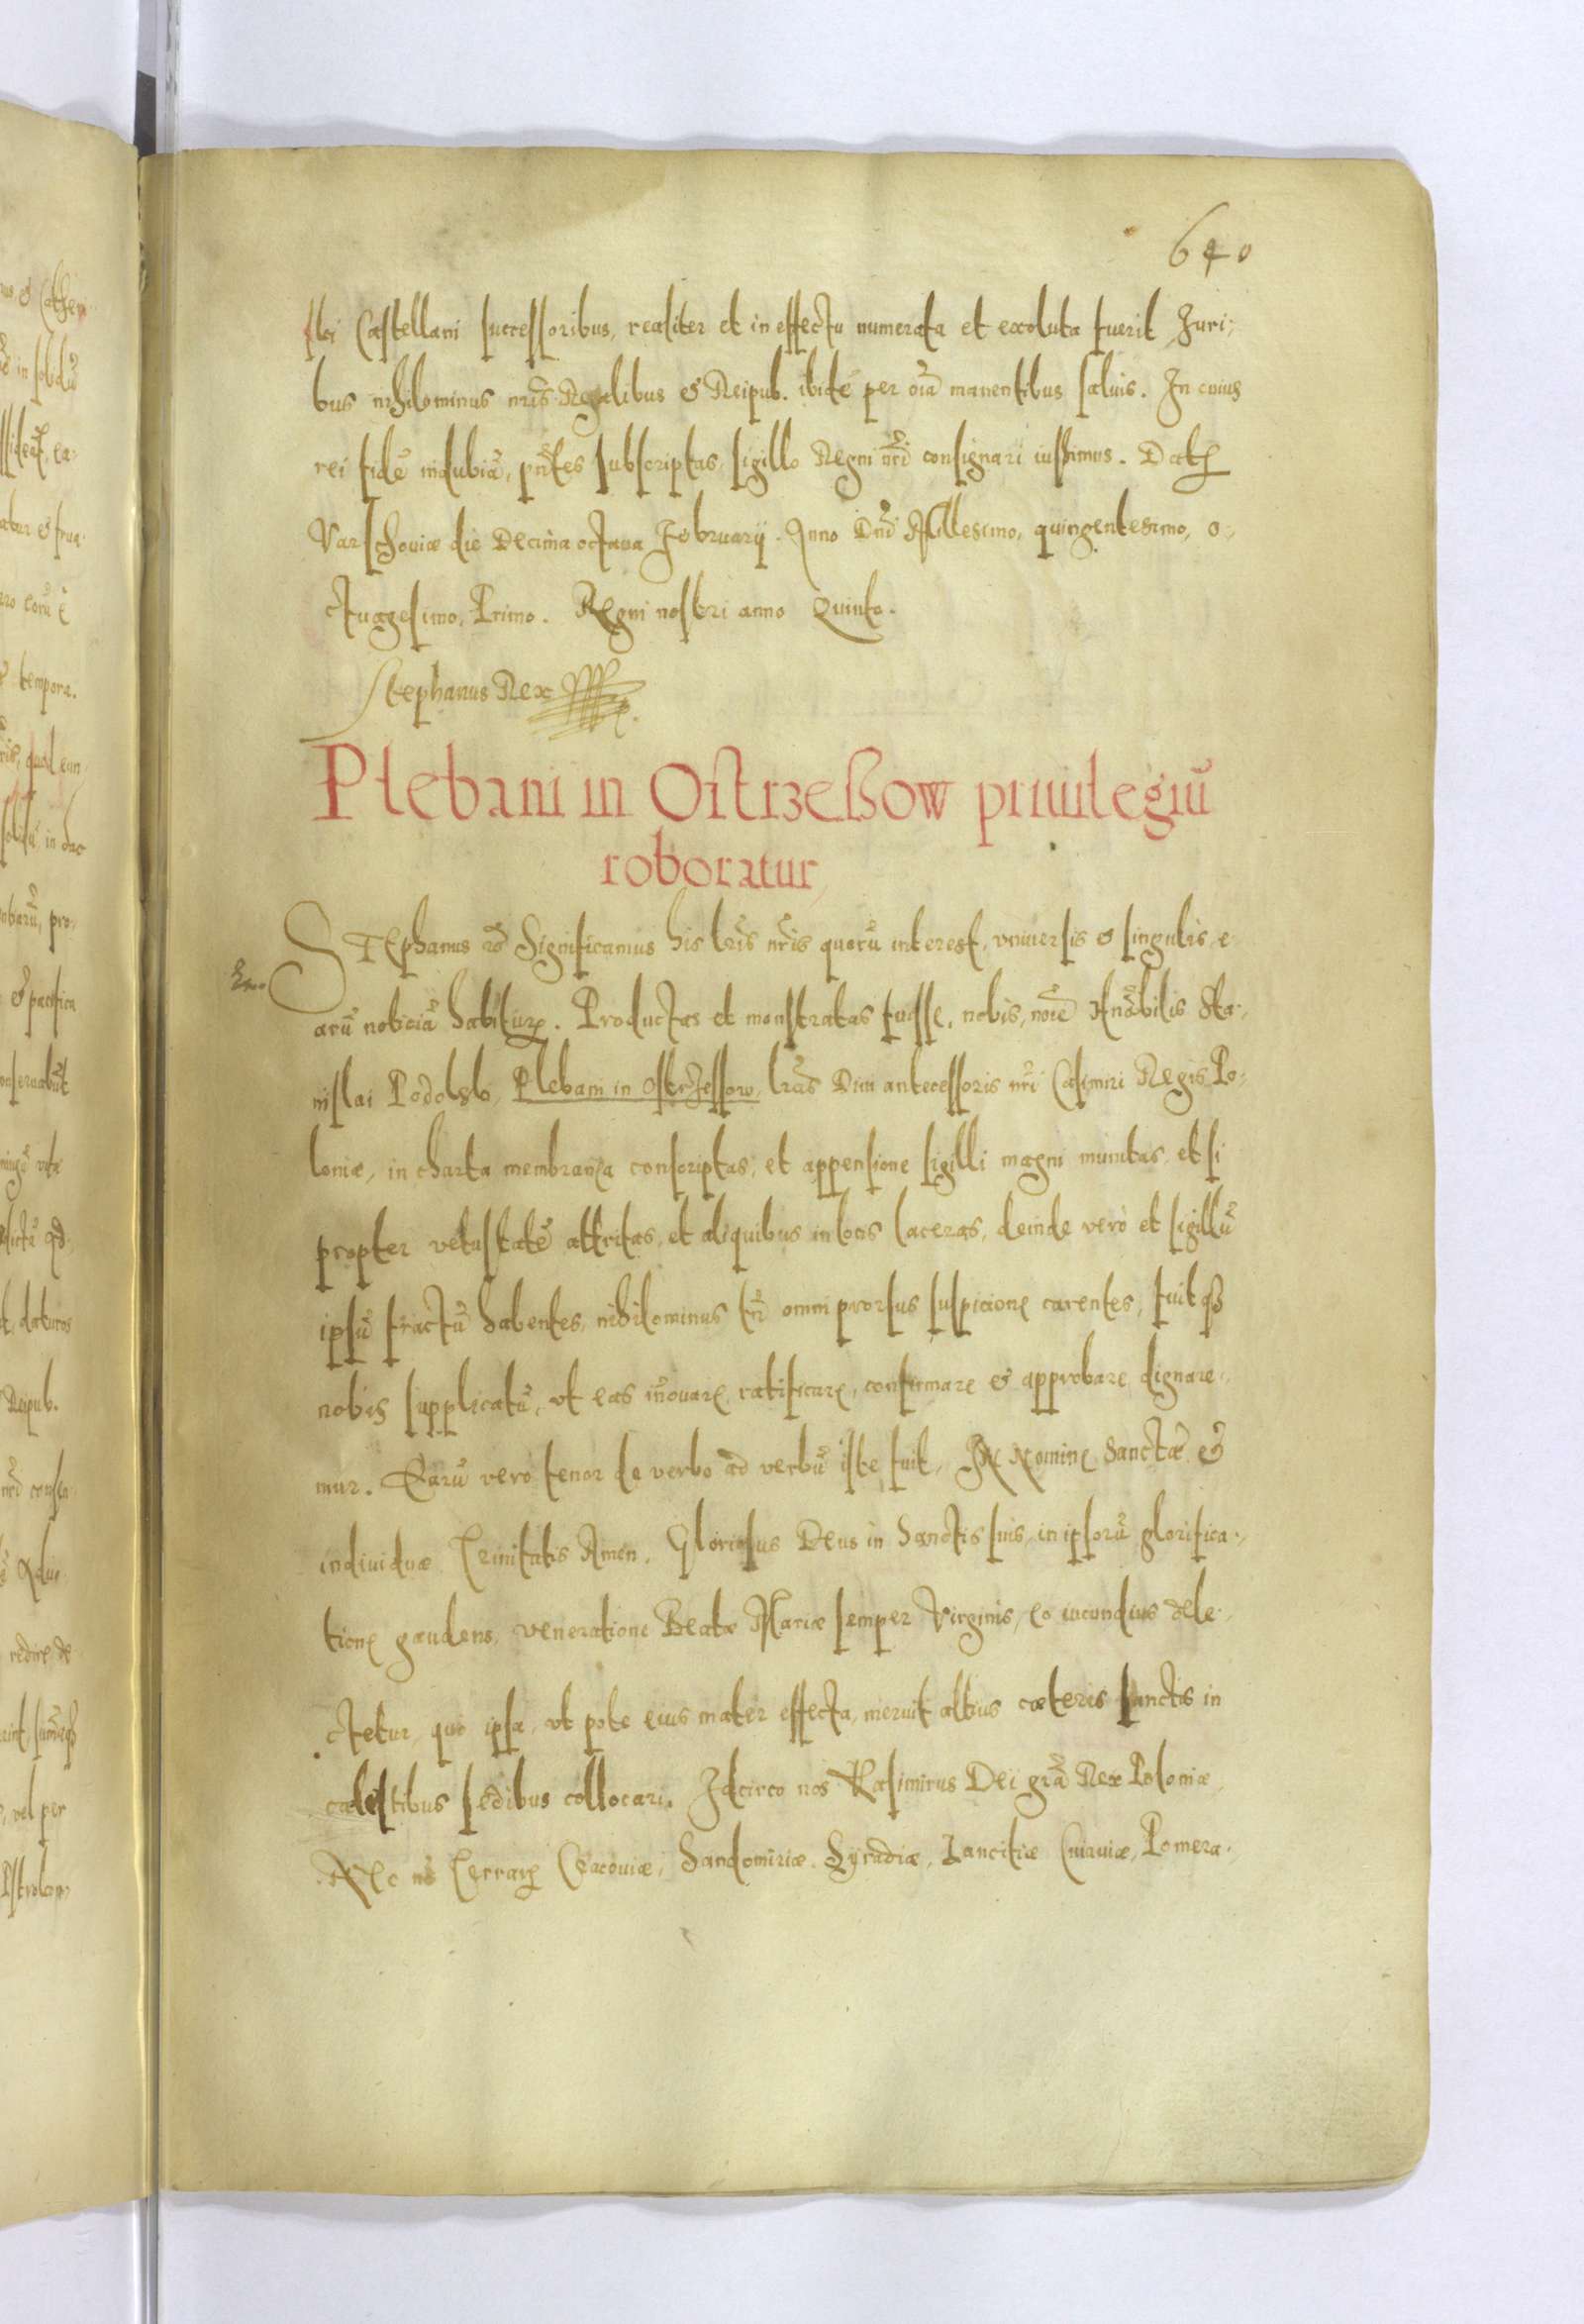 640
slei Castellani successoribus, realiter et in effectu numerata et exoluta fuerit, Juri;
bus nihilominus nr̃is Regalibus & Reipub. ibidẽ per oĩa manentibus saluis. In cuius
rei fidẽ indubiã, pñtes subscriptas, sigillo Regni nr̃i consignari iussimus. Datę
Varschouiæ die Decima octaua February. Anno Dñi Millesimo, quingentesimo, o-,
ctuagesimo, Primo. Regni nostri anno Quinto.
Stephanus Rex
Plebani in Ostrzeßow priuilegiũ
roboratur
STephanus &c̃ Significamus his lr̃is nr̃is quorũ interest, vniuersis & singulis, e
arũ noticiã habiturę. Productas et monstratas fuisse, nobis, noĩe Hnõrabilis Sta-,
nislai Podolski, Plebani in Ostrzessow, lr̃as Diui antecessoris nr̃i Casimiri Regis Po-
loniæ, in charta membranea conscriptas, et appensione sigilli magni munitas, et si
propter vetustatẽ attritas, et aliquibus in locis laceras, deinde verò et sigillũ
ipsũ fractũ habentes, nihilominus tñ omni prorsus suspicione carentes, fuitqȝ
nobis supplicatũ, vt eas iñouare, ratificare, confirmare & approbare dignare-,
mur. Earũ verò tenor de verbo ad verbũ iste fuit, In Nomine Sanctæ &
indiuiduæ Trinitatis Amen. Gloriosus Deus in Sanctis suis, in ipsorũ glorifica-,
tione gaudens, veneratione Beatæ Mariæ semper Virginis, eo iucundius dele-,
ctetur, quo ipsa, vt pote eius mater effecta, meruit altius cæteris sanctis in
cælestibus sedibus collocari. Idcirco nos Kasimirus Dei gr̃a Rex Poloniæ,
Terrarę Cracouiæ, Sandomiriæ, Syradiæ, Lancitiæ Cuiauiæ, Pomera-